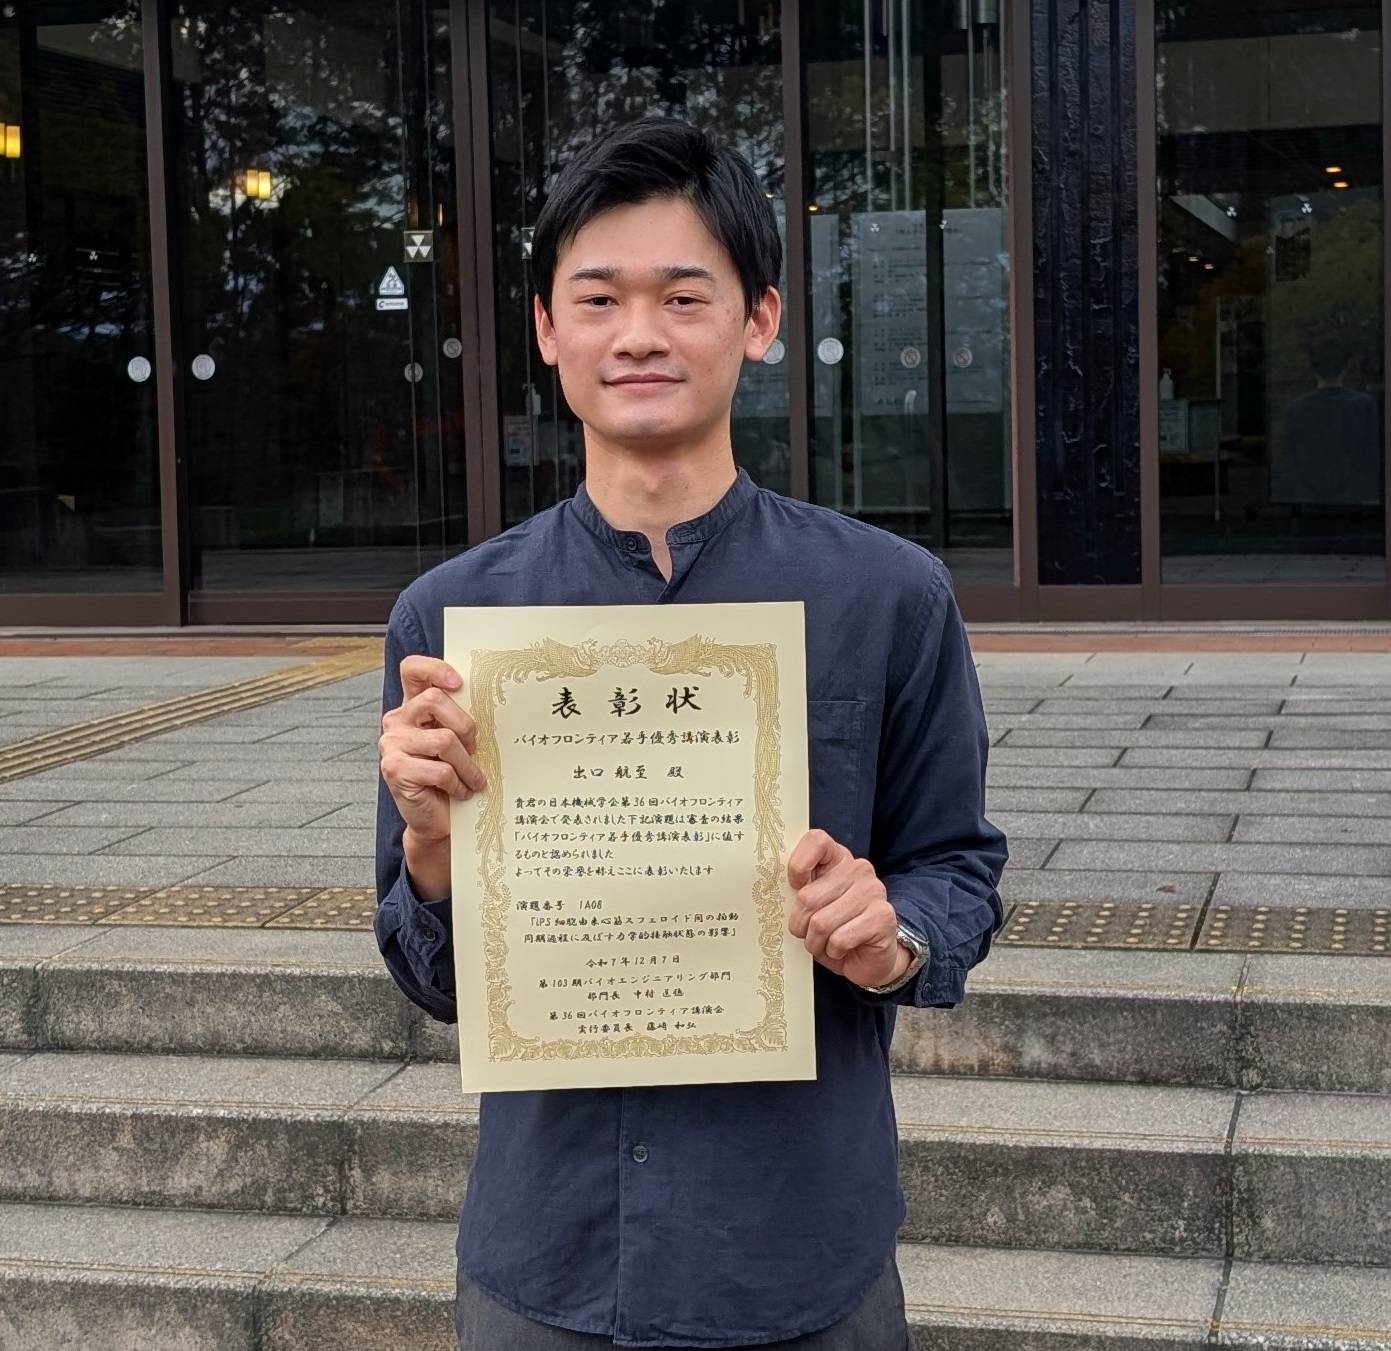 表彰状
バイオフロンティア若手優秀講演表彰
出口 航至 殿
貴君の日本機械学会第36回バイオフロンティア
講演会で発表されました下記演題は審査の結果
「バイオフロンティア若手優秀講演表彰」に値す
るものと認められました
よってその栄誉を称えここに表彰いたします
演題番号 1A08
「iPS細胞由来心筋スフェロイド間の拍動
同期過程に及ぼす力学的接触状態の影響」
令和7年12月7日
第103期バイオエンジニアリング部門
部門長 中村 匡徳
第36回バイオフロンティア講演会
実行委員長 藤﨑 和弘